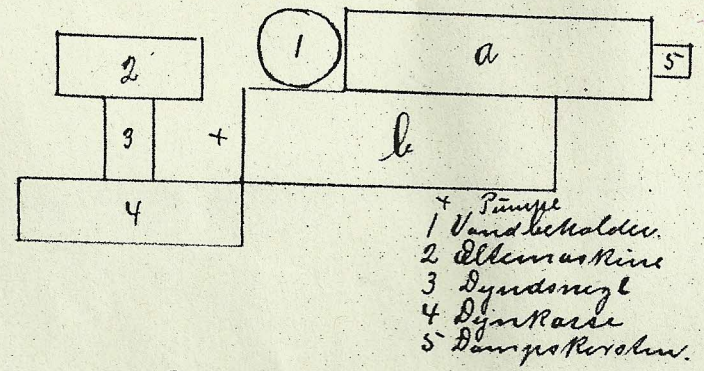 1
a
5
2
3
+
b
4
+ Pumpe
1 Vandbeholder.
2 Æltemaskine
3 Dyndsnegl
4 Dynkasse
5 Dampskorsten.